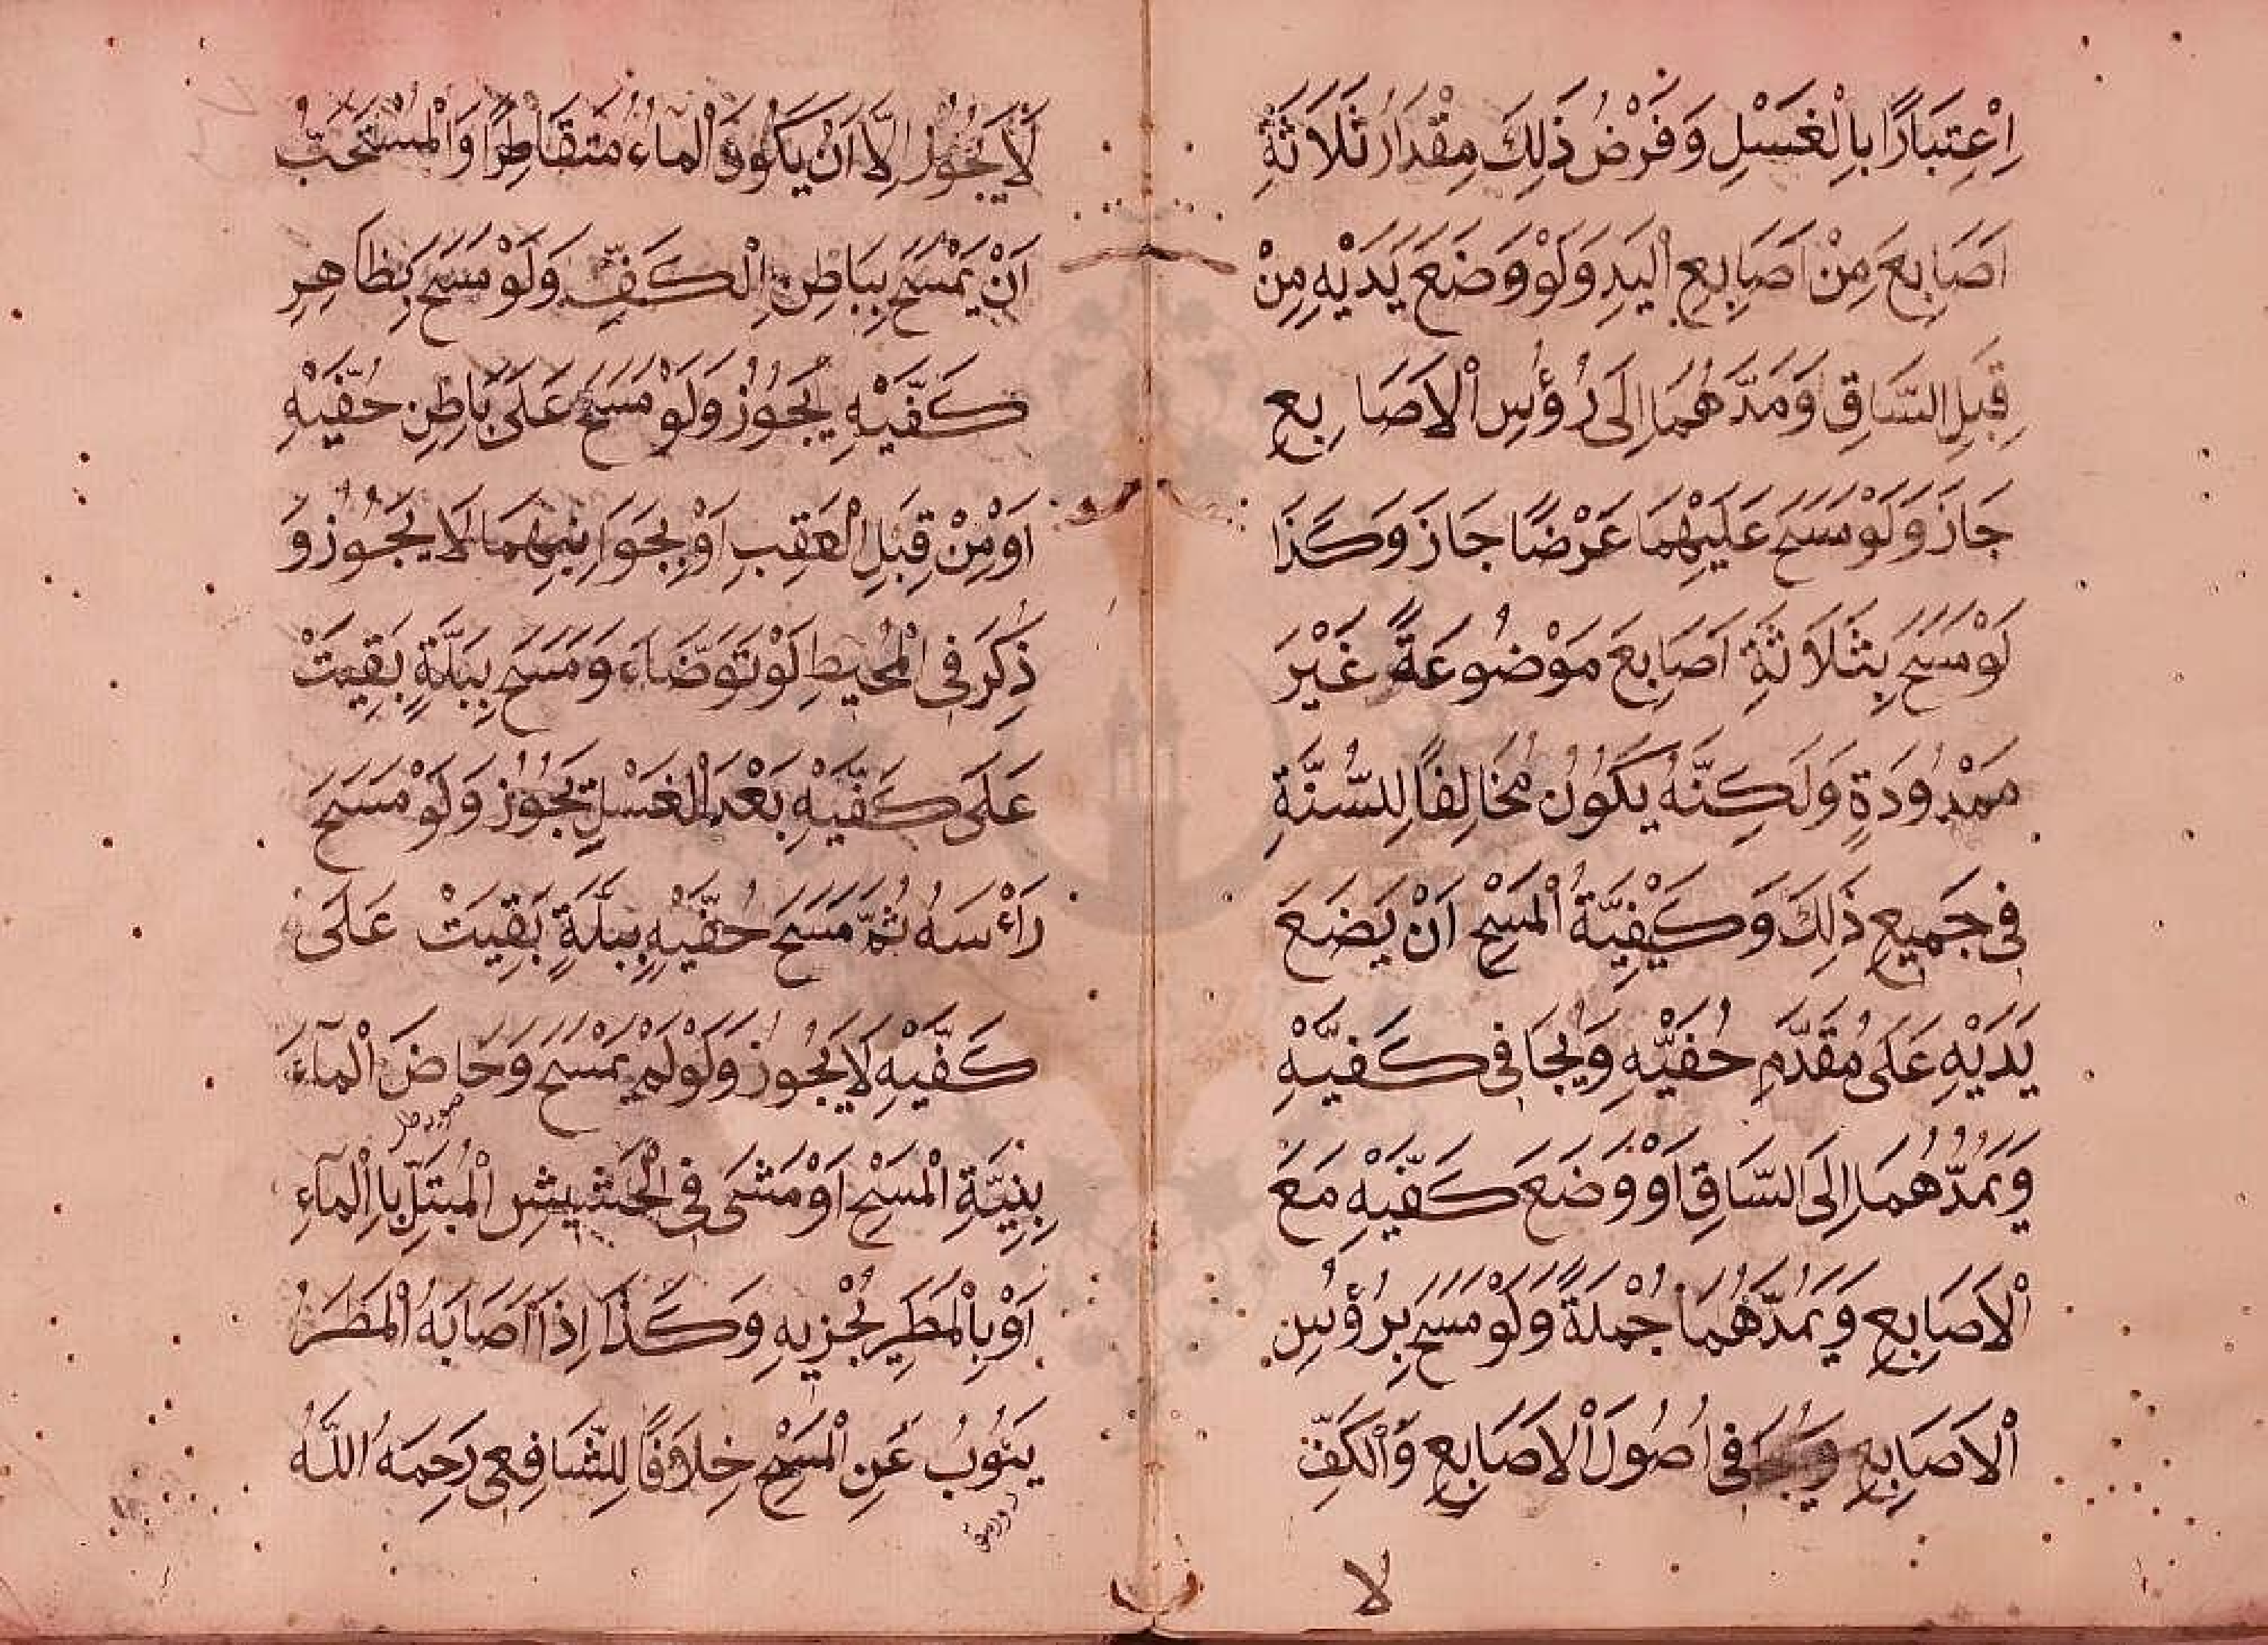 اِعْتِبَارًا بِالْغَسْلِ وَفَرْضُ ذَلِكَ مِقْدَارُ ثَلَاثَةِ
اَصَابِعَ مِنْ اَصَابِعِ الْيَدِ وَلَوْ وَضَعَ يَدَيْهِ مِنْ
قِبَلِ السَّاقِ وَمَدَّهُمَا اِلَى رُؤُسِ الْاَصَابِعِ
جَازَ وَلَوْ مَسَحَ عَلَيْهِمَا عَرْضًا جَازَ وَكَذَا
لَوْ مَسَحَ بِثَلَاثَةِ اَصَابِعَ مَوْضُوعَةً غَيْرَ
مَمْدُودَةٍ وَلَكِنَّهُ يَكُونُ مُخَالِفًا لِلسُّنَّةِ
فِى جَمِيعِ ذَلِكَ وَكَيْفِيَّةُ الْمَسْحِ اَنْ يَضَعَ
يَدَيْهِ عَلَى مُقَدَّمِ خُفَيَّهِ وَيُجَافِى كَفَيَّهْ
وَيَمُدُّهُمَا اِلَى السَّاقِ اَوْ وَضَعَ كَفَّيْهِ مَعَ
الْاَصَابِعِ وَيَمُدَّهُمَا جُمْلَةً وَلَوْ مَسَحَ بِرُؤُسِ
الْاَصَابِعِ فِى اُصُولَ الْاَصَابِعِ وَالْكَفِّ
لا
لَا يَجُوزُ اِلَّا اَنْ يَكُونَ الْمَاءُ مُتَقَاطِرًا وَالْمُسْتَحَبُّ
اَنْ يَمْسَحَ بِبَاطِنِ الْكَفِّ وَلَوْ مَسَحَ بِظَاهِرِ
كَفَّيْهِ يَجُوزُ وَلَوْ مَسَحَ عَلَى بَاطِنِ خُفَّيْهِ
اَوْ مِنْ قِبَلِ الْعَقِبِ اَوْ بِجَوَانِبِهِمَا لَا يَجُوزُ وَ
ذُكِرَ فِى الْمُحِيطِ لَوْ تَوَضَّاءَ وَمَسَحَ بِبَلَّةٍ بَقِيَتْ
عَلَى كَفَّيْهِ بَعْدَ الْغَسْلِ يَجُوزُ وَلَوْ مَسَحَ
رَأْسَهُ ثُمَّ مَسَحَ خُفَّيْهِ بِبَلَّةٍ بَقِيَتْ عَلَى
كَفَّيْهِ لَا يَجُوزُ وَلَوْ لَمْ يَمْسَحْ وَخَاضَ الْمَآءَ
بِنِيَّةِ الْمَسْحِ اَوْ مَشَى فِى الْحَشِيشِ الْمُبْتَلِّ بِالْمَآءِ
اَوْ بِالْمَطَرِ يُجْزِيهِ وَكَذَا اِذَا اَصَابَهُ الْمَطَرُ
يَنُوبُ عَنِ الْمَسْحِ خِلَافًا لِلشَّافِعِى رَحِمَهُ اللَّهُ